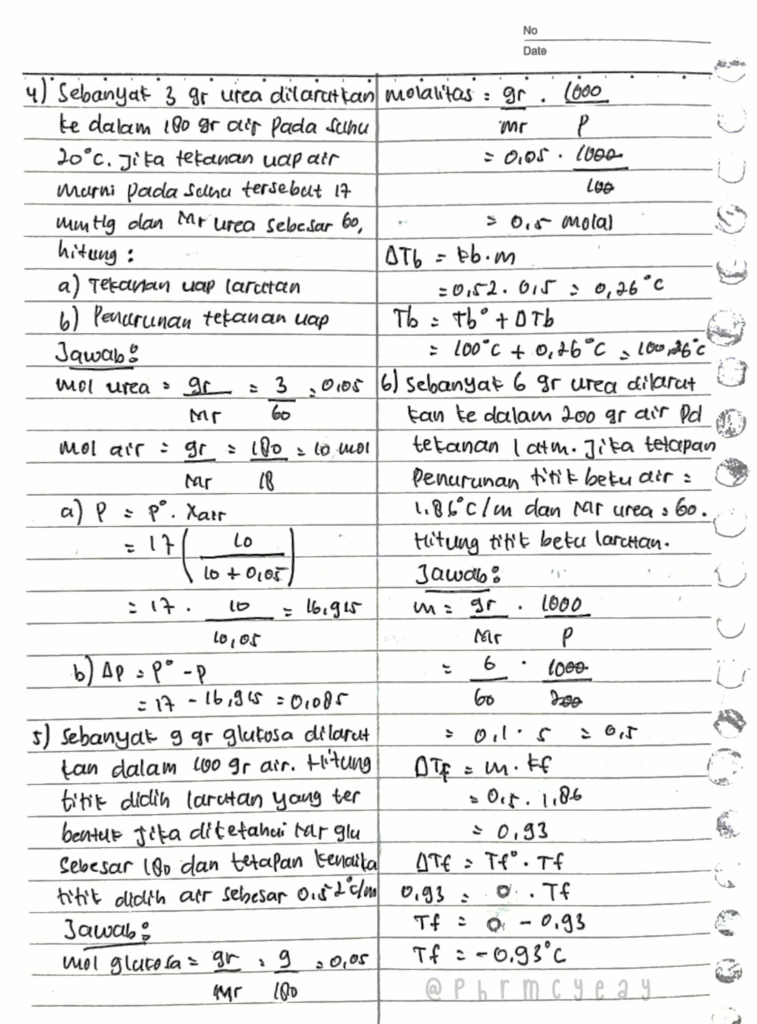 No
Date
4) Sebanyak 3 gr urea dilarutkan
ke dalam 180 gr air pada suhu
20°C. Jika tekanan uap air
murni pada suhu tersebut 17
mmHg dan Mr urea sebesar 60,
hitung :
a) Tekanan uap larutan
b) Penurunan tekanan uap
Jawab :
mol urea = gr = 3 = 0,05
Mr 60
mol air = gr = 180 = 10 mol
Mr 18
a) P = P° . Xair
= 17 ( 10
10 + 0,05 )
= 17 . 10 = 16,915
10,05
b) ΔP = P° - P
= 17 - 16,915 = 0,085
5) Sebanyak 9 gr glukosa dilarut
kan dalam 100 gr air. Hitung
titik didih larutan yang ter
bentuk jika diketahui Mr glu
sebesar 180 dan tetapan kenaika
titik didih air sebesar 0,52°C/m
Jawab :
mol glukosa = gr = 9 = 0,05
Mr 180
molalitas = gr . 1000
mr P
= 0,05 . 1000
100
= 0,5 molal
ΔTb = kb . m
= 0,52 . 0,5 = 0,26°C
Tb = Tb° + ΔTb
= 100°C + 0,26°C = 100,26°C
6) Sebanyak 6 gr urea dilarut
kan ke dalam 200 gr air pd
tekanan 1 atm. Jika tetapan
penurunan titik beku air =
1.86°C/m dan Mr urea = 60.
Hitung titik beku larutan.
Jawab :
m = gr . 1000
Mr P
= 6 . 1000
60 200
= 0,1 . 5 = 0,5
ΔTf = m . kf
= 0,5 . 1,86
= 0,93
ΔTf = Tf° . Tf
0,93 = 0 . Tf
Tf = 0 - 0,93
Tf = -0,93°C
@phrmcyeay